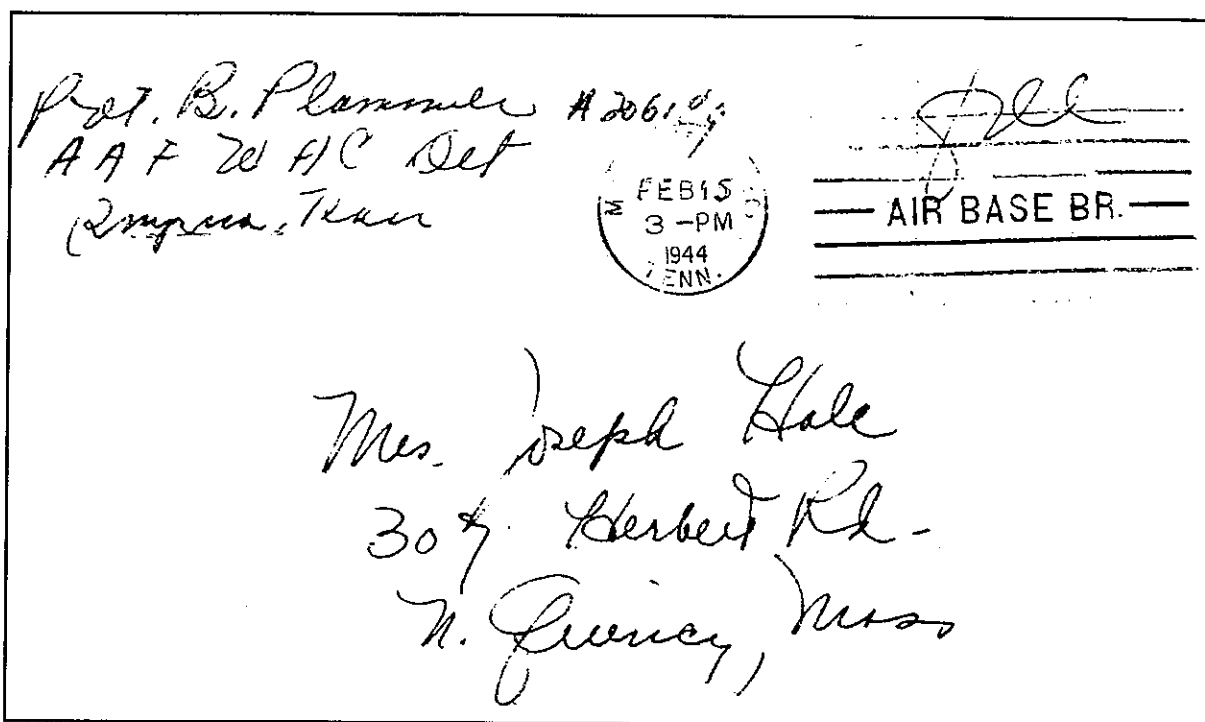 Pvt. B. Plammer A2061
AAF WAC Det
Smyrna, Tenn
Free
FEB 15
3-PM
1944
TENN.
AIR BASE BR.
Mrs. Joseph Hale
307 Herbert Rd-
N. Quincy, Mass